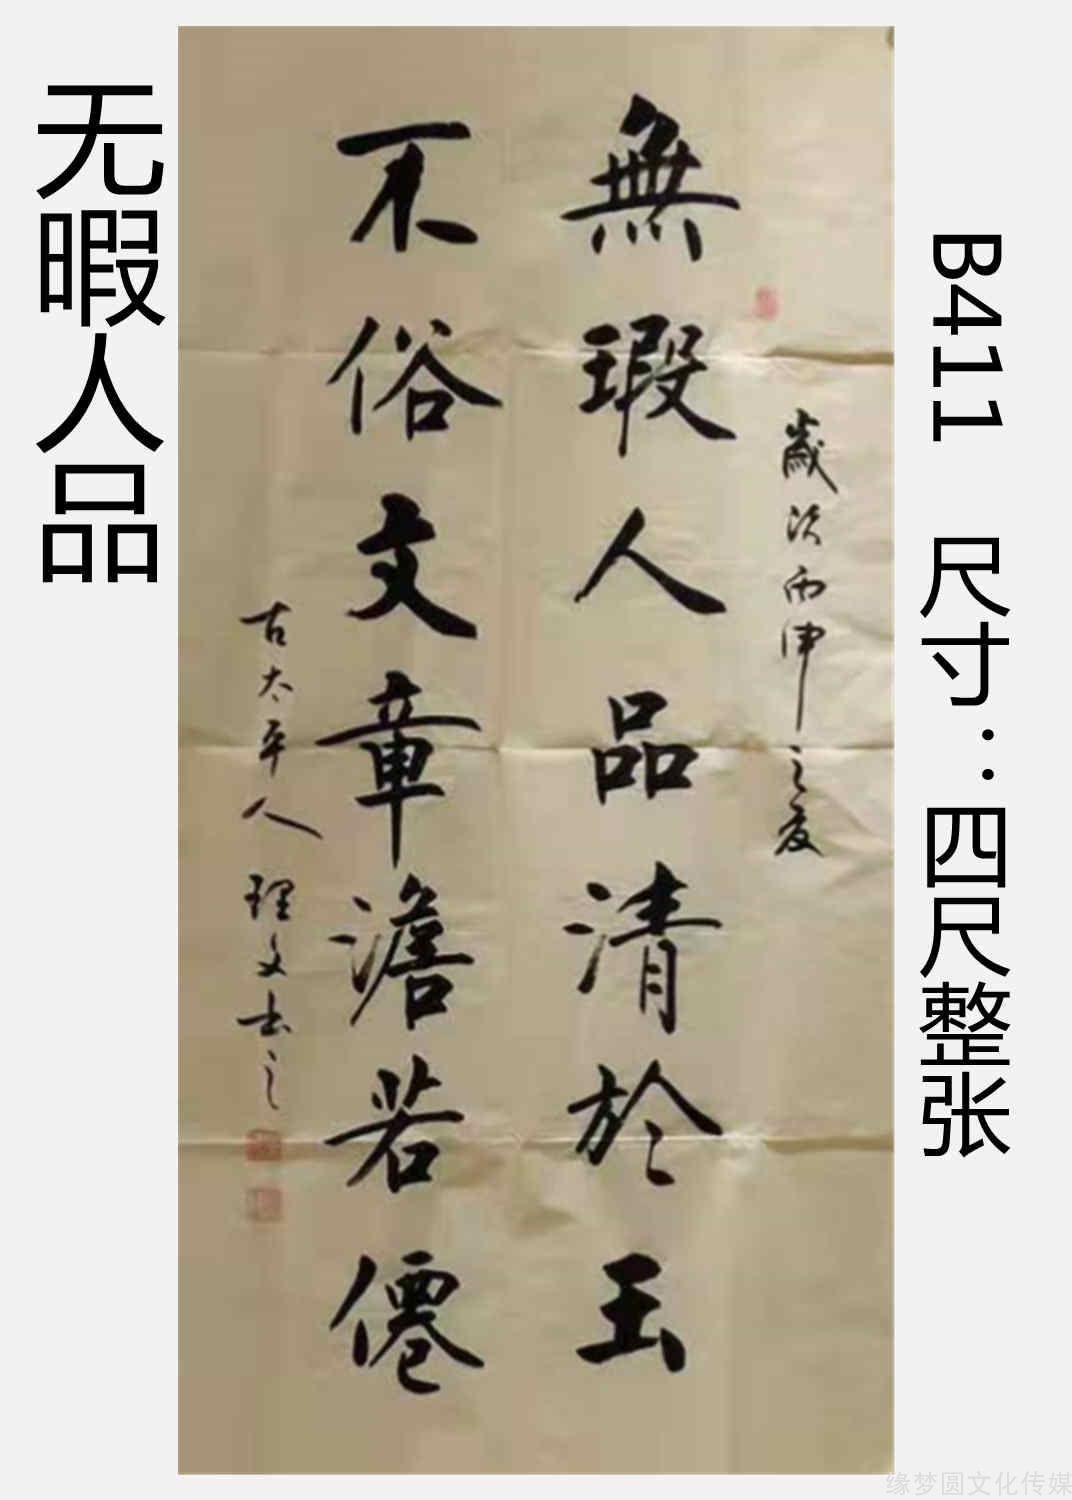 无暇人品
歲次丙申之夏
無瑕人品清於玉
不俗文章澹若僊
古太平人理文书之
B411 尺寸：四尺整张
缘梦圆文化传媒